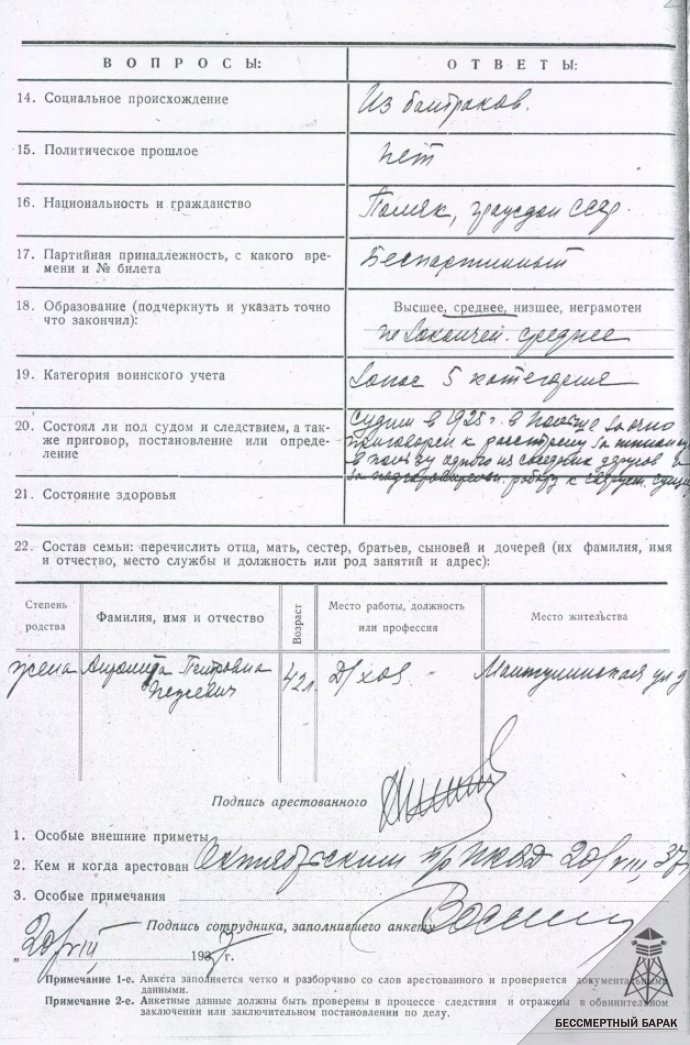 ВОПРОСЫ: ОТВЕТЫ:
14. Социальное происхождение Из батраков.
15. Политическое прошлое нет
16. Национальность и гражданство Поляк, СССР.
17. Партийная принадлежность, с какого вре-
мени и № билета Беспартийный
18. Образование (подчеркнуть и указать точно Высшее, среднее, низшее, неграмотен
что закончил): среднее
19. Категория воинского учета Запас 5 категория
20. Состоял ли под судом и следствием, а так- Судим в 1925 г. в Польше заочно
же приговор, постановление или опреде- к расстрелу за
ление в пользу одного из соседних
21. Состояние здоровья
22. Состав семьи: перечислить отца, мать, сестер, братьев, сыновей и дочерей (их фамилия, имя
и отчество, место службы и должность или род занятий и адрес):
Степень
родства
Фамилия, имя и отчество
Возраст
Место работы, должность
или профессия
Место жительства
жена Петровна 42 л. Д/хоз
Подпись арестованного
1. Особые внешние приметы
2. Кем и когда арестован Октябрьским НКВД 20/VIII, 37
3. Особые примечания
Подпись сотрудника, заполнившего анкету
„20/VIII 1937 г.
Примечание 1-е. Анкета заполняется четко и разборчиво со слов арестованного и проверяется документальными
данными.
Примечание 2-е. Анкетные данные должны быть проверены в процессе следствия и отражены в обвинительном
заключении или заключительном постановлении по делу.
БЕССМЕРТНЫЙ БАРАК